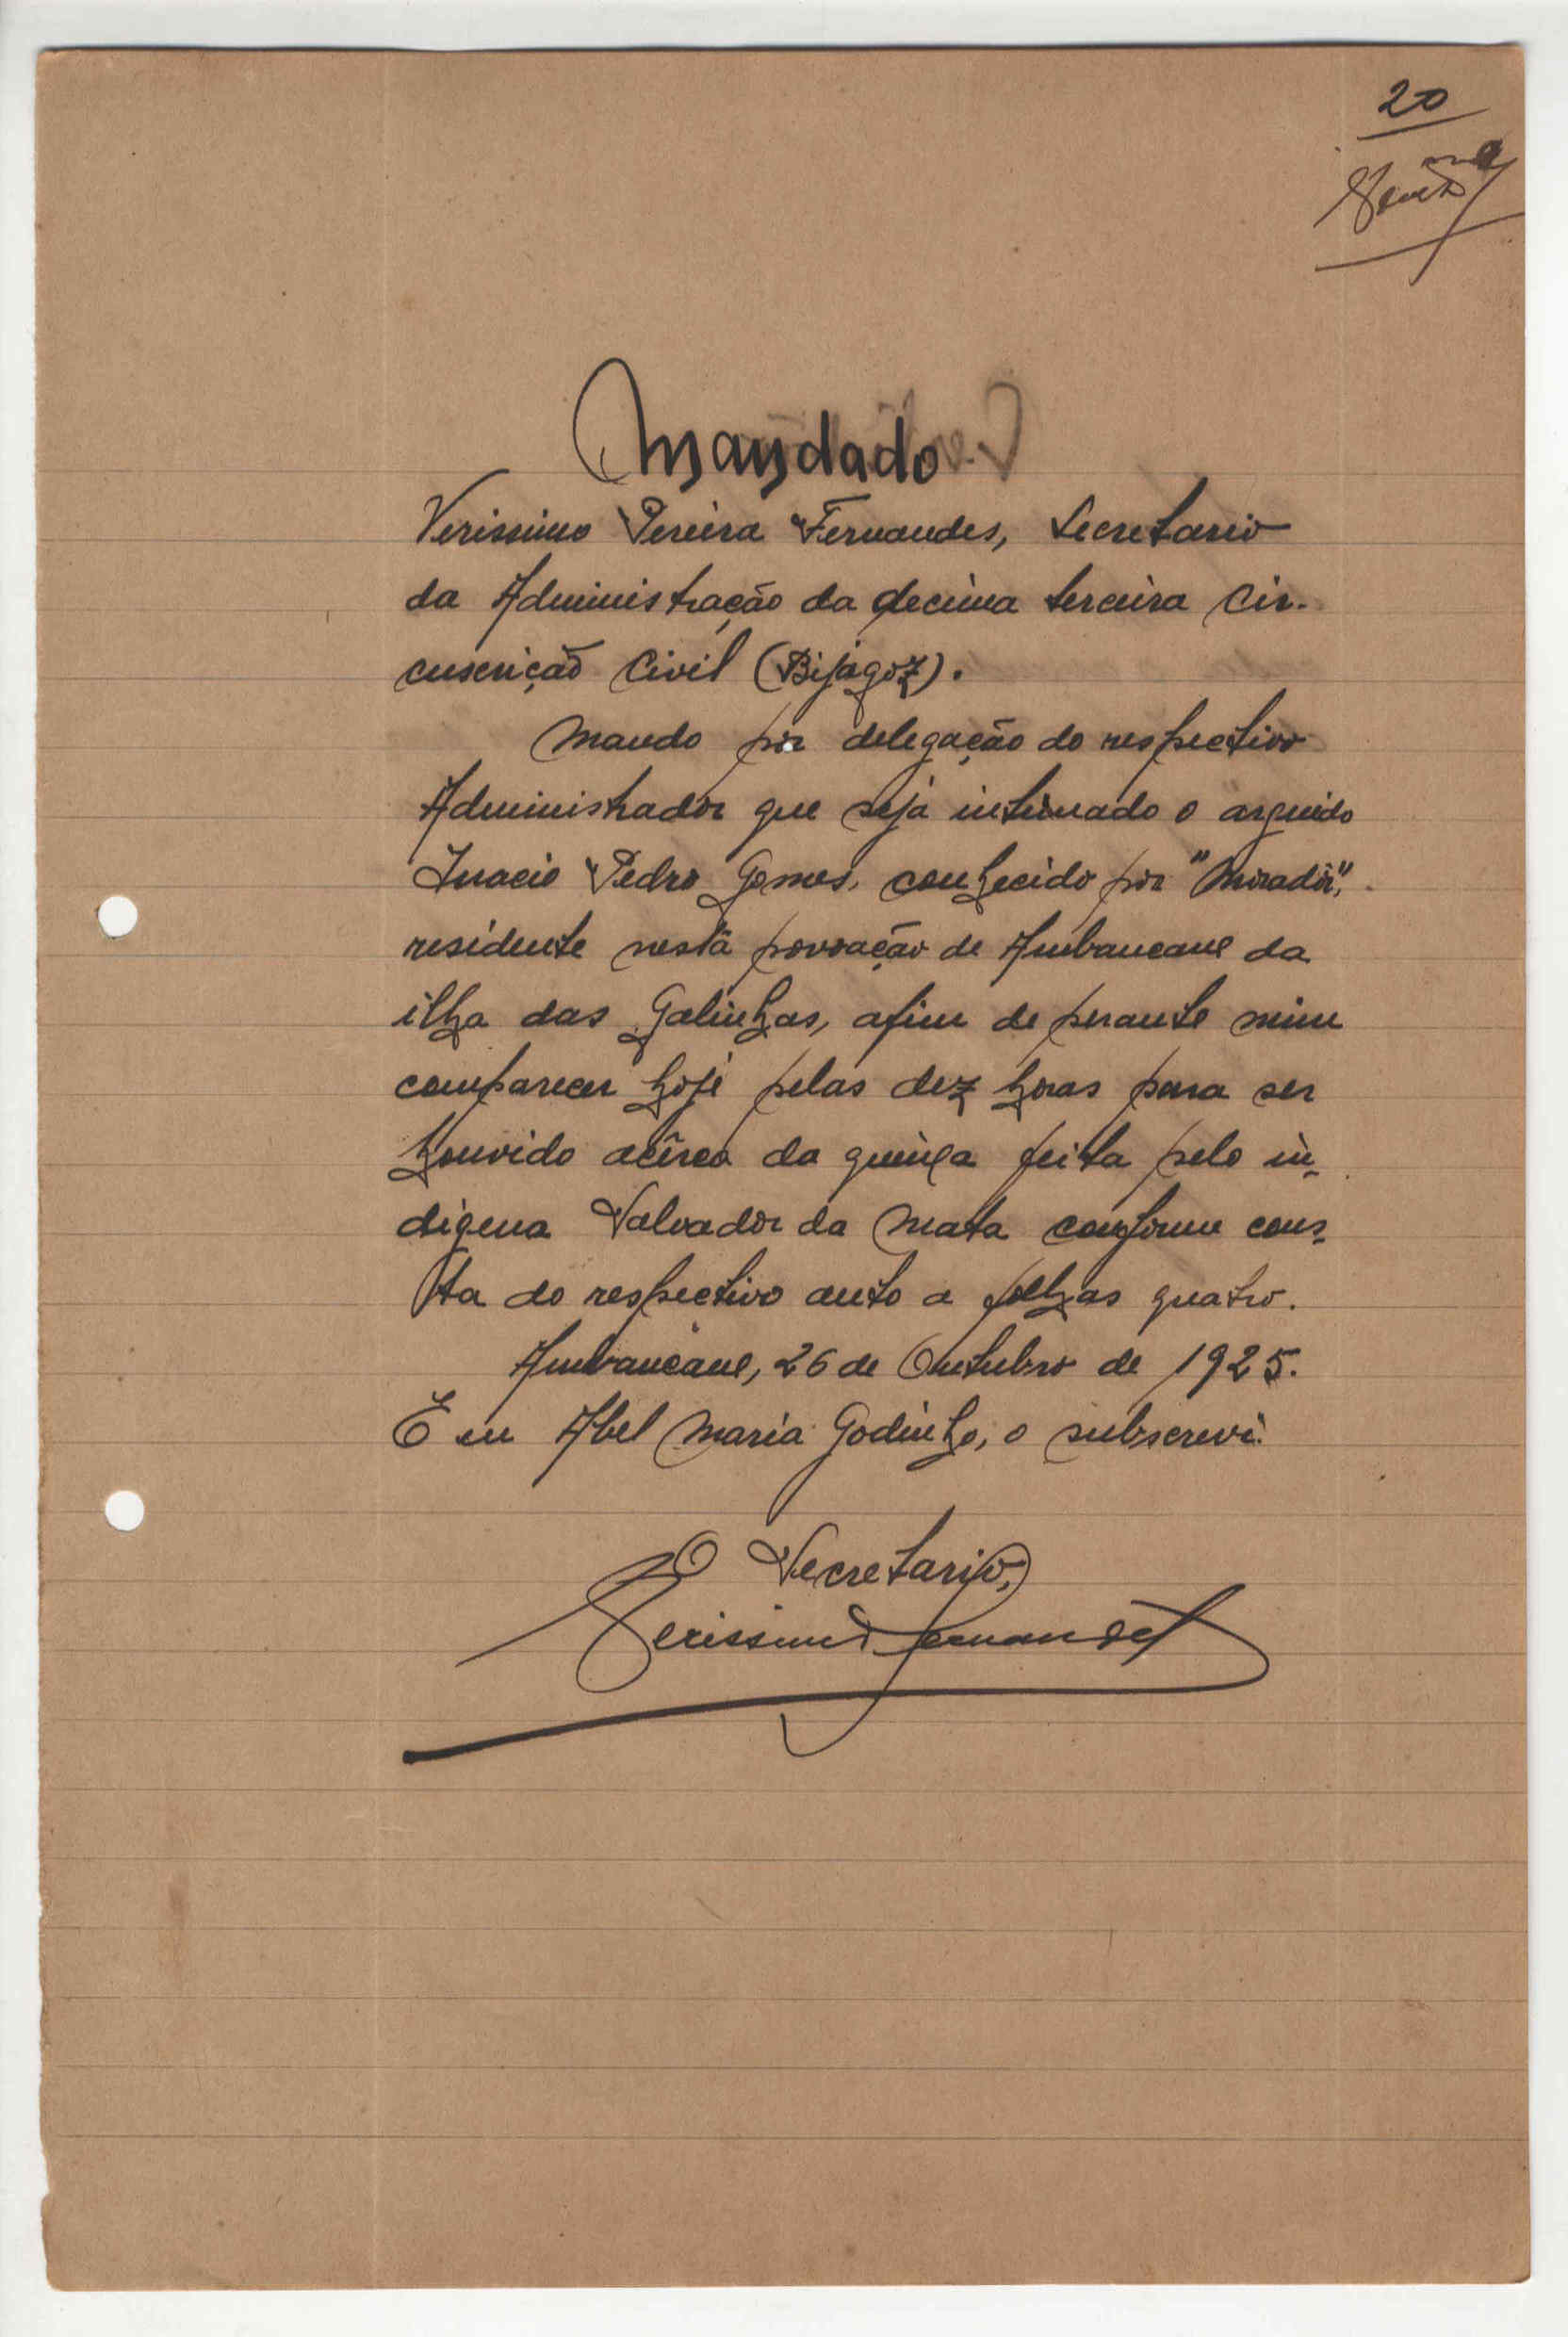 20
Mandado
Verissimo Pereira Fernandes, Secretario
da Administração da decima terceira Cir-
cuscrição Civil (Bijagoz).
Mando por delegação do respectivo
Administrador que seja intimado o arguido
Inacio Pedro Gomes, conhecido por "Mirador",
residente nesta povoação de Ambancane da
ilha das Galinhas, afim de perante mim
comparecer hoje pelas dez horas para ser
houvido acêrca da queixa feita pelo in-
digena Salvador da Mata conforme cons-
ta do respectivo auto a folhas quatro.
Ambancane, 26 de Outubro de 1925.
E eu Abel Maria Godinho, o subscrevi.
O Secretario,
Verissimo Fernandes